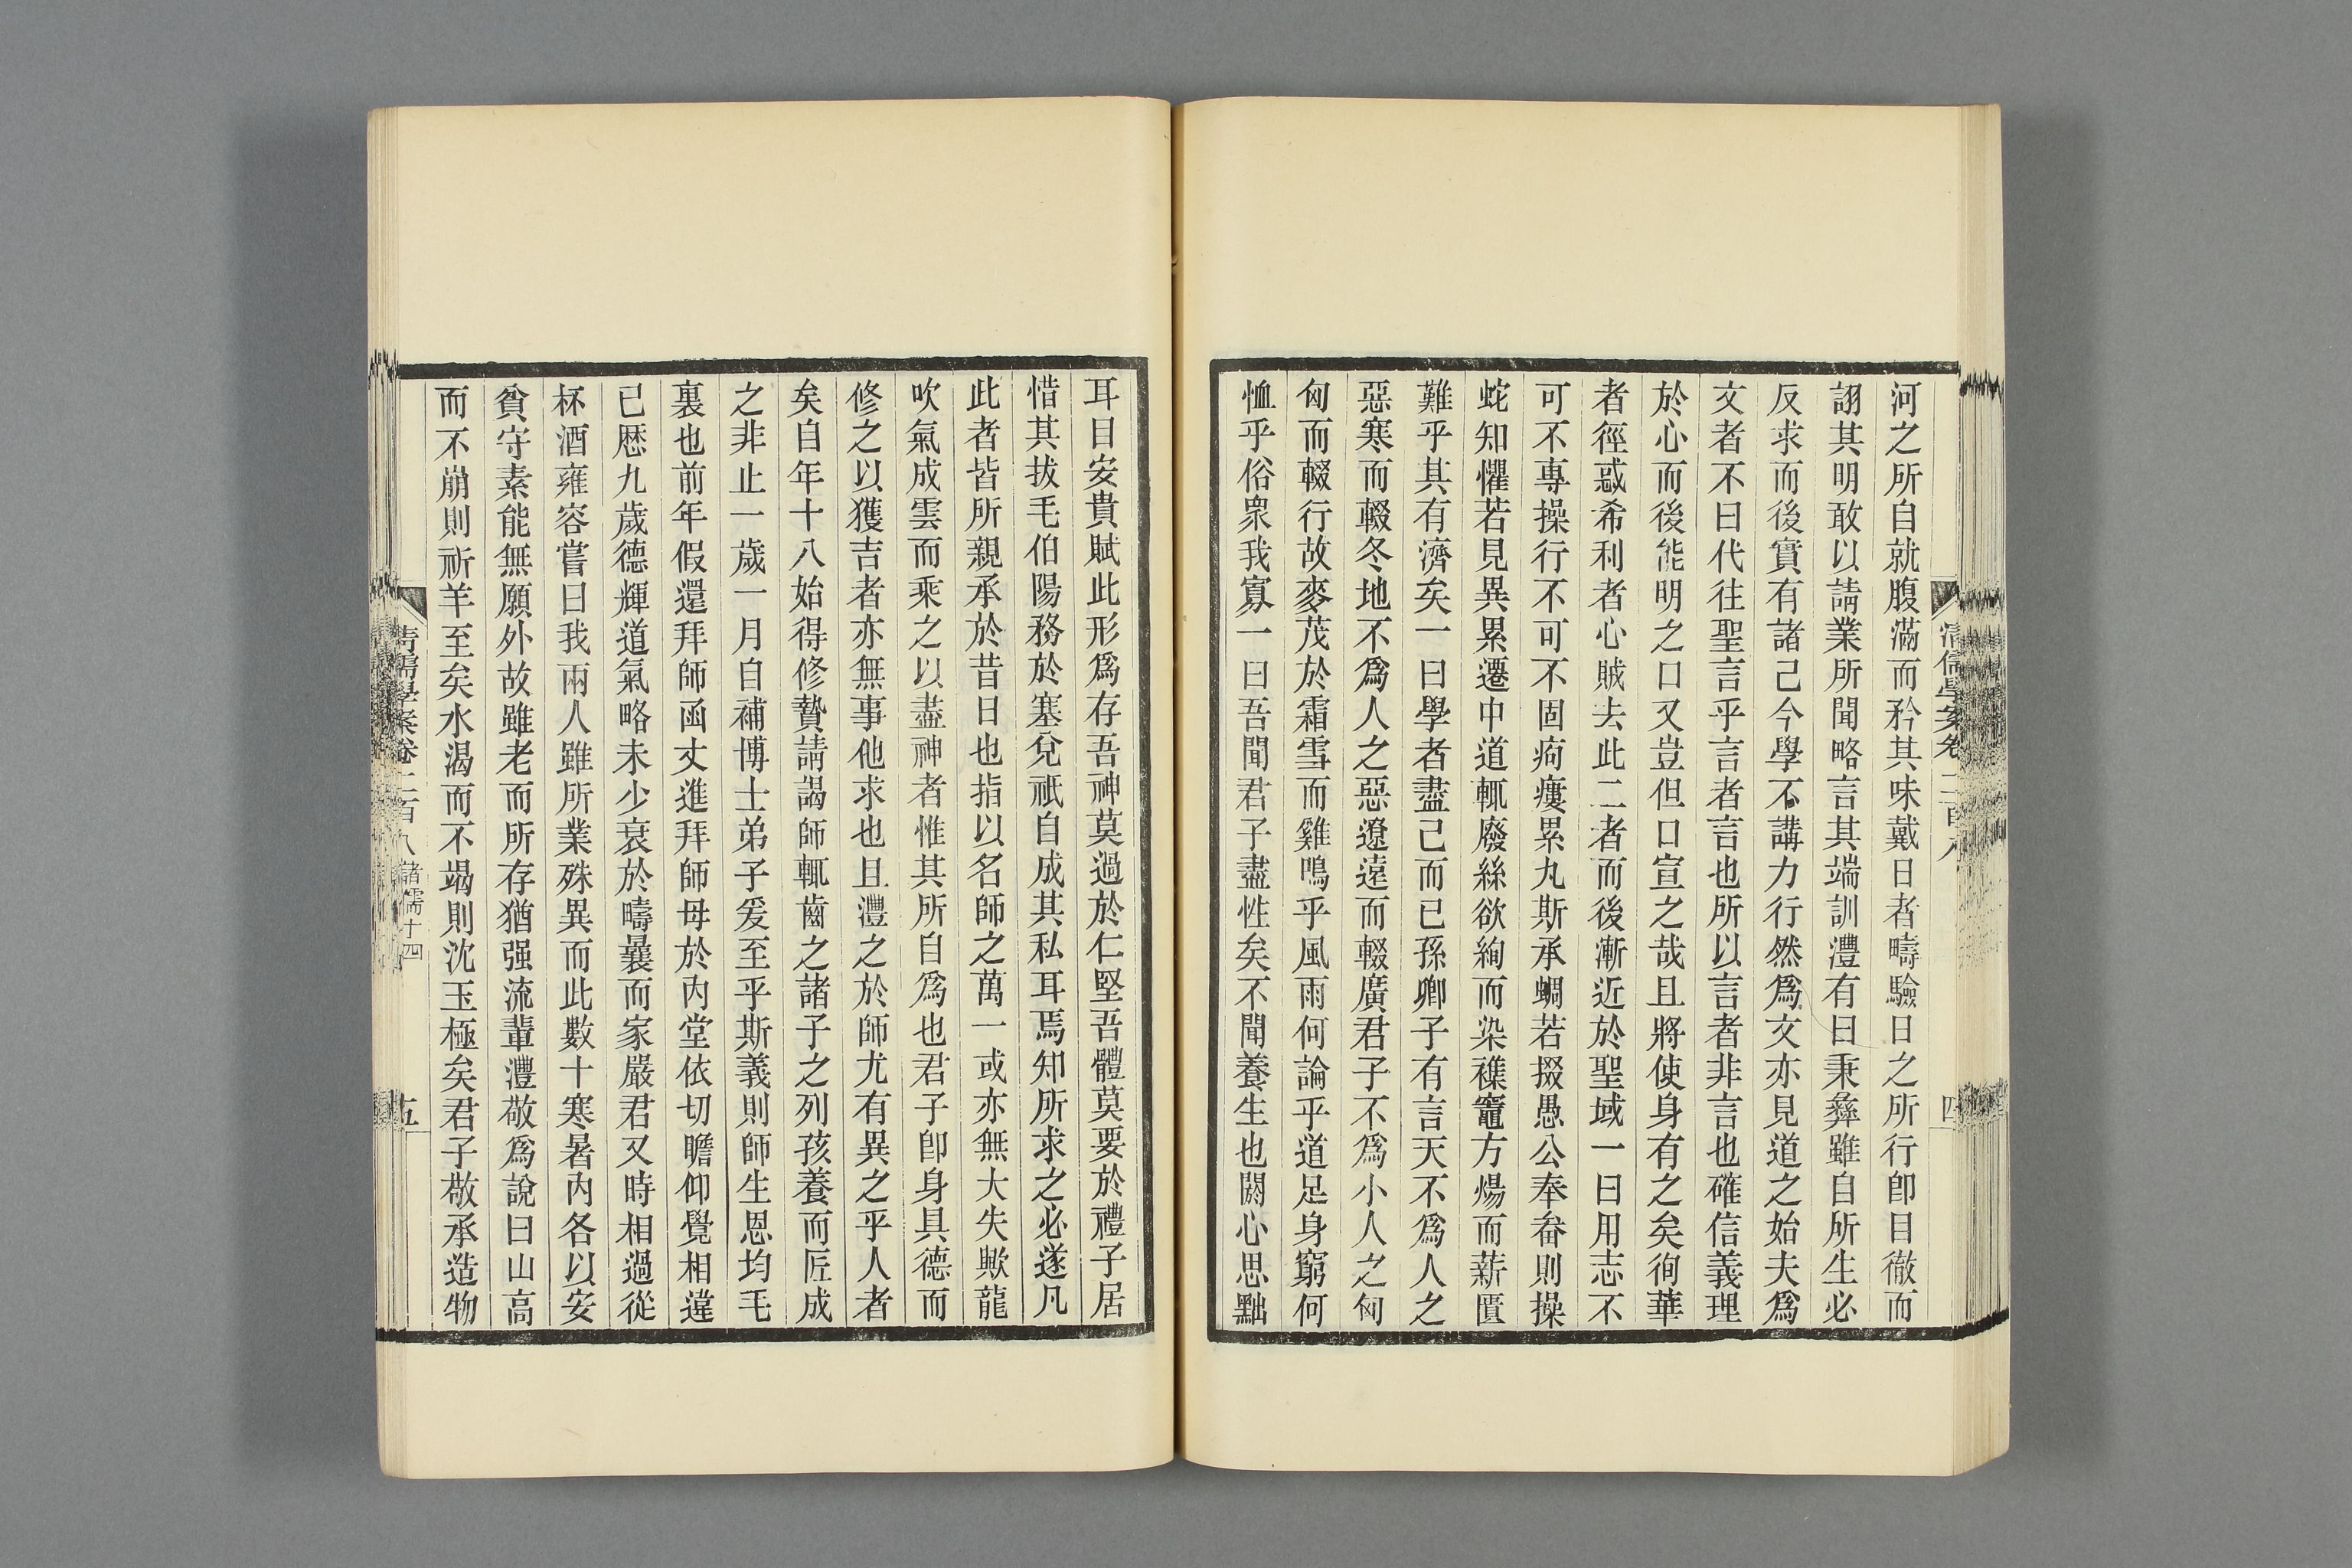 清儒學案卷二百八
四
河之所自就腹滿而矜其味戴日者疇驗日之所行卽目徹而
詡其明敢以請業所聞略言其端訓灃有曰秉彝雖自所生必
反求而後實有諸己今學不講力行然爲文亦見道之始夫爲
文者不曰代往聖言乎言者言也所以言者非言也確信義理
於心而後能明之口又豈但口宣之哉且將使身有之矣徇華
者徑惑希利者心賊去此二者而後漸近於聖域一曰用志不
可不專操行不可不固痀瘻累丸斯承蜩若掇愚公奉畚則操
蛇知懼若見異累遷中道輒廢絲欲絢而染襍竈方煬而薪匱
難乎其有濟矣一曰學者盡己而已孫卿子有言天不爲人之
惡寒而輟冬地不爲人之惡遼遠而輟廣君子不爲小人之匈
匈而輟行故麥茂於霜雪而雞鳴乎風雨何論乎道足身窮何
恤乎俗衆我寡一曰吾聞君子盡性矣不聞養生也閼心思黜
耳目安貴賦此形爲存吾神莫過於仁堅吾體莫要於禮子居
惜其拔毛伯陽務於塞兌祇自成其私耳焉知所求之必遂凡
此者皆所親承於昔日也指以名師之萬一或亦無大失歟龍
吹氣成雲而乘之以盡神者惟其所自爲也君子卽身具德而
修之以獲吉者亦無事他求也且灃之於師尤有異之乎人者
矣自年十八始得修贄請謁師輒齒之諸子之列孩養而匠成
之非止一歲一月自補博士弟子爰至乎斯義則師生恩均毛
裏也前年假還拜師函丈進拜師母於內堂依切瞻仰覺相違
已歷九歲德輝道氣略未少衰於疇曩而家嚴君又時相過從
杯酒雍容嘗曰我兩人雖所業殊異而此數十寒暑內各以安
貧守素能無願外故雖老而所存猶强流輩灃敬爲說曰山高
而不崩則祈羊至矣水渴而不竭則沈玉極矣君子敬承造物
清儒學案卷二百八 諸儒十四
五